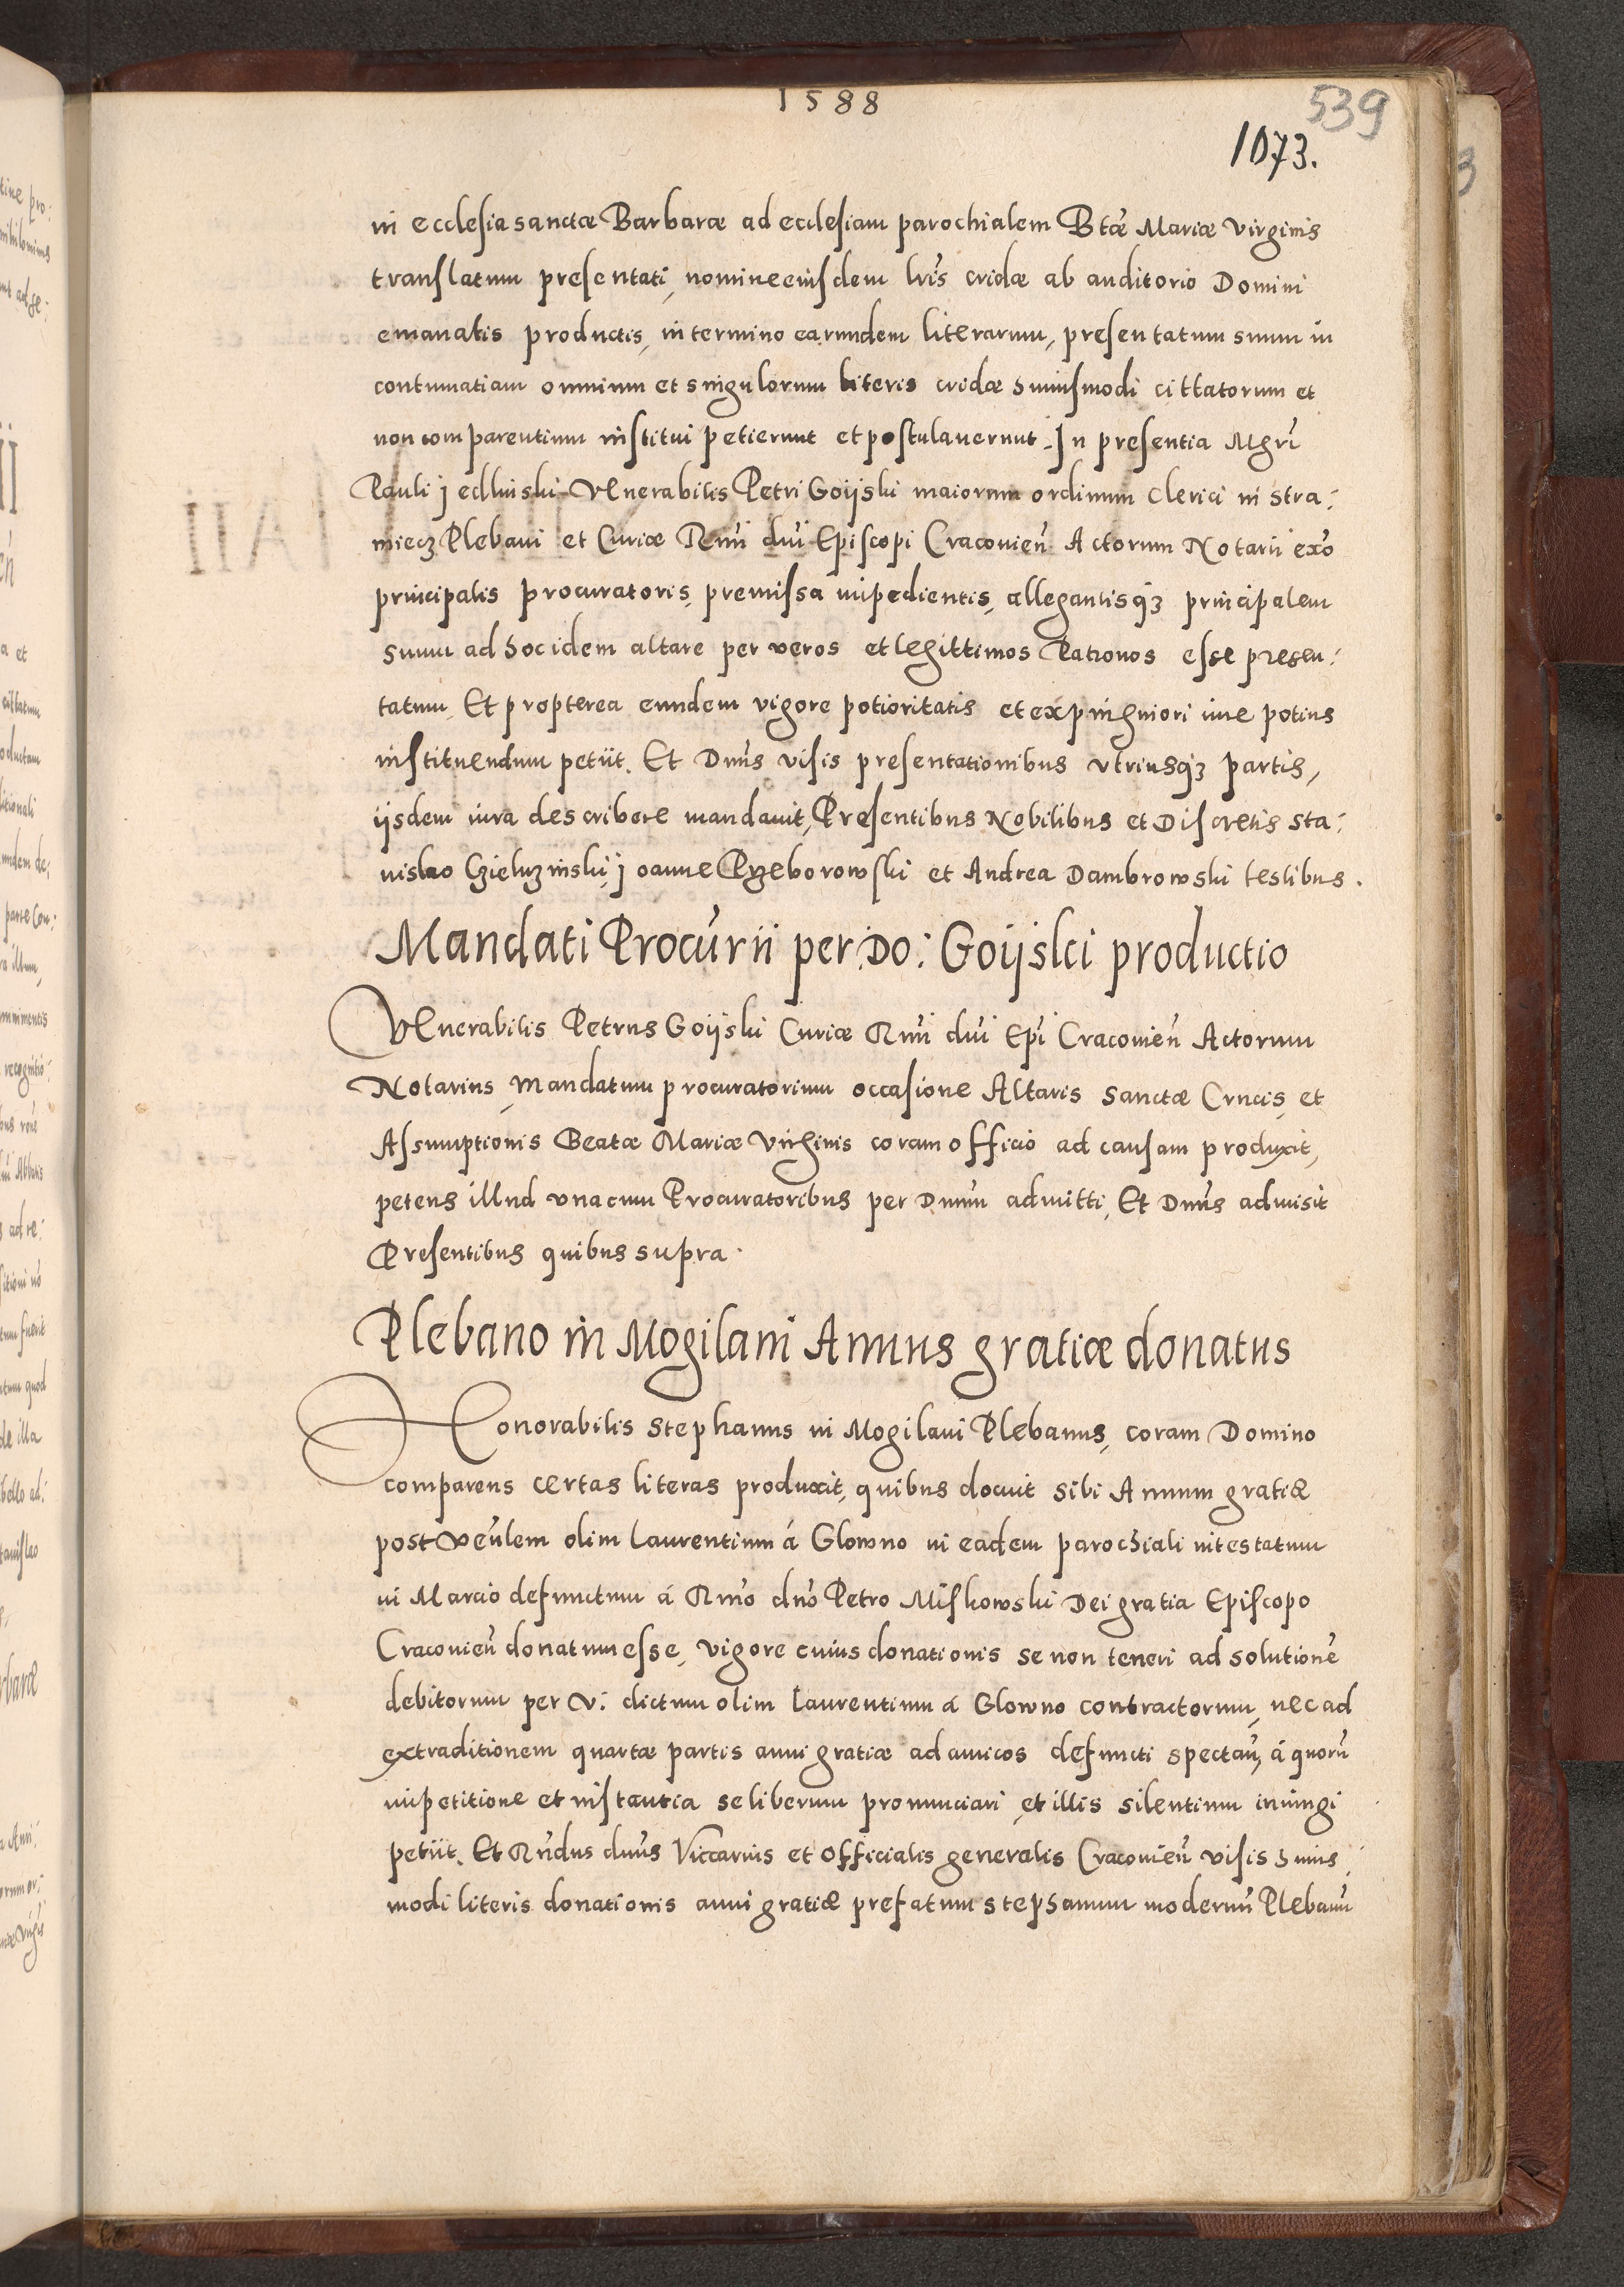 1588
539
1073.
in ecclesia sanctæ Barbaræ ad ecclesiam parochialem Btæ̃ Mariæ Virginis
translatum presentati, nomine eiusdem lrĩs cridæ ab auditorio Domini
emanatis productis, in termino earundem literarum, presentatum suum in
contumatiam omnium et singulorum literis cridæ huiusmodi cittatorum et
non comparentium institui petierunt et postulaverunt. In presentia Mgrĩ
Pauli Jedlinski Venerabilis Petri Goijski maiorum ordinum Clerici in Stra:
miecz Plebani et Curiæ Rmĩ dnĩ Episcopi Cracovien̄ Actorum Notarii ex̃o
principalis procuratoris, premissa impedientis, allegantisq3 principalem
suum ad hoc idem altare per veros et legittimos Patronos esse presen:
tatum. Et propterea eundem vigore potioritatis et ex pinguiori iure potius
instituendum petiit. Et Dnūs visis presentationibus utriusq3 partis,
iisdem iura describere mandavit, Presentibus Nobilibus et Discretis Sta:
nislao Czieluzinski, Joanne Przeborowski et Andrea Dambrowski testibus.
Mandati Procũrii per Do: Goijski productio
Venerabilis Petrus Goijski Curiæ Rmĩ dnĩ Epĩ Cracovien̄ Actorum
Notarius, Mandatum procuratorium occasione Altaris Sanctæ Crucis, et
Assumptionis Beatæ Mariæ Virginis coram officio ad causam produxit,
petens illud una cum Procuratoribus per Dnūm admitti, Et Dnūs admisit
Presentibus quibus supra.
Plebano in Mogilani Annus gratiæ donatus
Honorabilis Stephanus in Mogilani Plebanus, coram Domino
comparens certas literas produxit, quibus docuit sibi Annum gratiæ
post Venlem̃ olim Laurentium á Glowno in eadem parochiali intestatum
in Marcio defunctum á Rmõ dnõ Petro Miskowski Dei gratia Episcopo
Cracovien̄ donatum esse, vigore cuius donationis se non teneri ad solutionẽ
debitorum per V: dictum olim Laurentium á Glowno contractorum, nec ad
extraditionem quartæ partis anni gratiæ ad amicos defuncti spectan̄, á quorũ
impetitione et instantia se liberum pronunciari, et illis silentium iniungi
petiit. Et Rñdus dnūs Viccarius et Officialis generalis Cracovien̄ visis huius
modi literis donationis anni gratiæ prefatum Stephanum modernũ Plebanũ